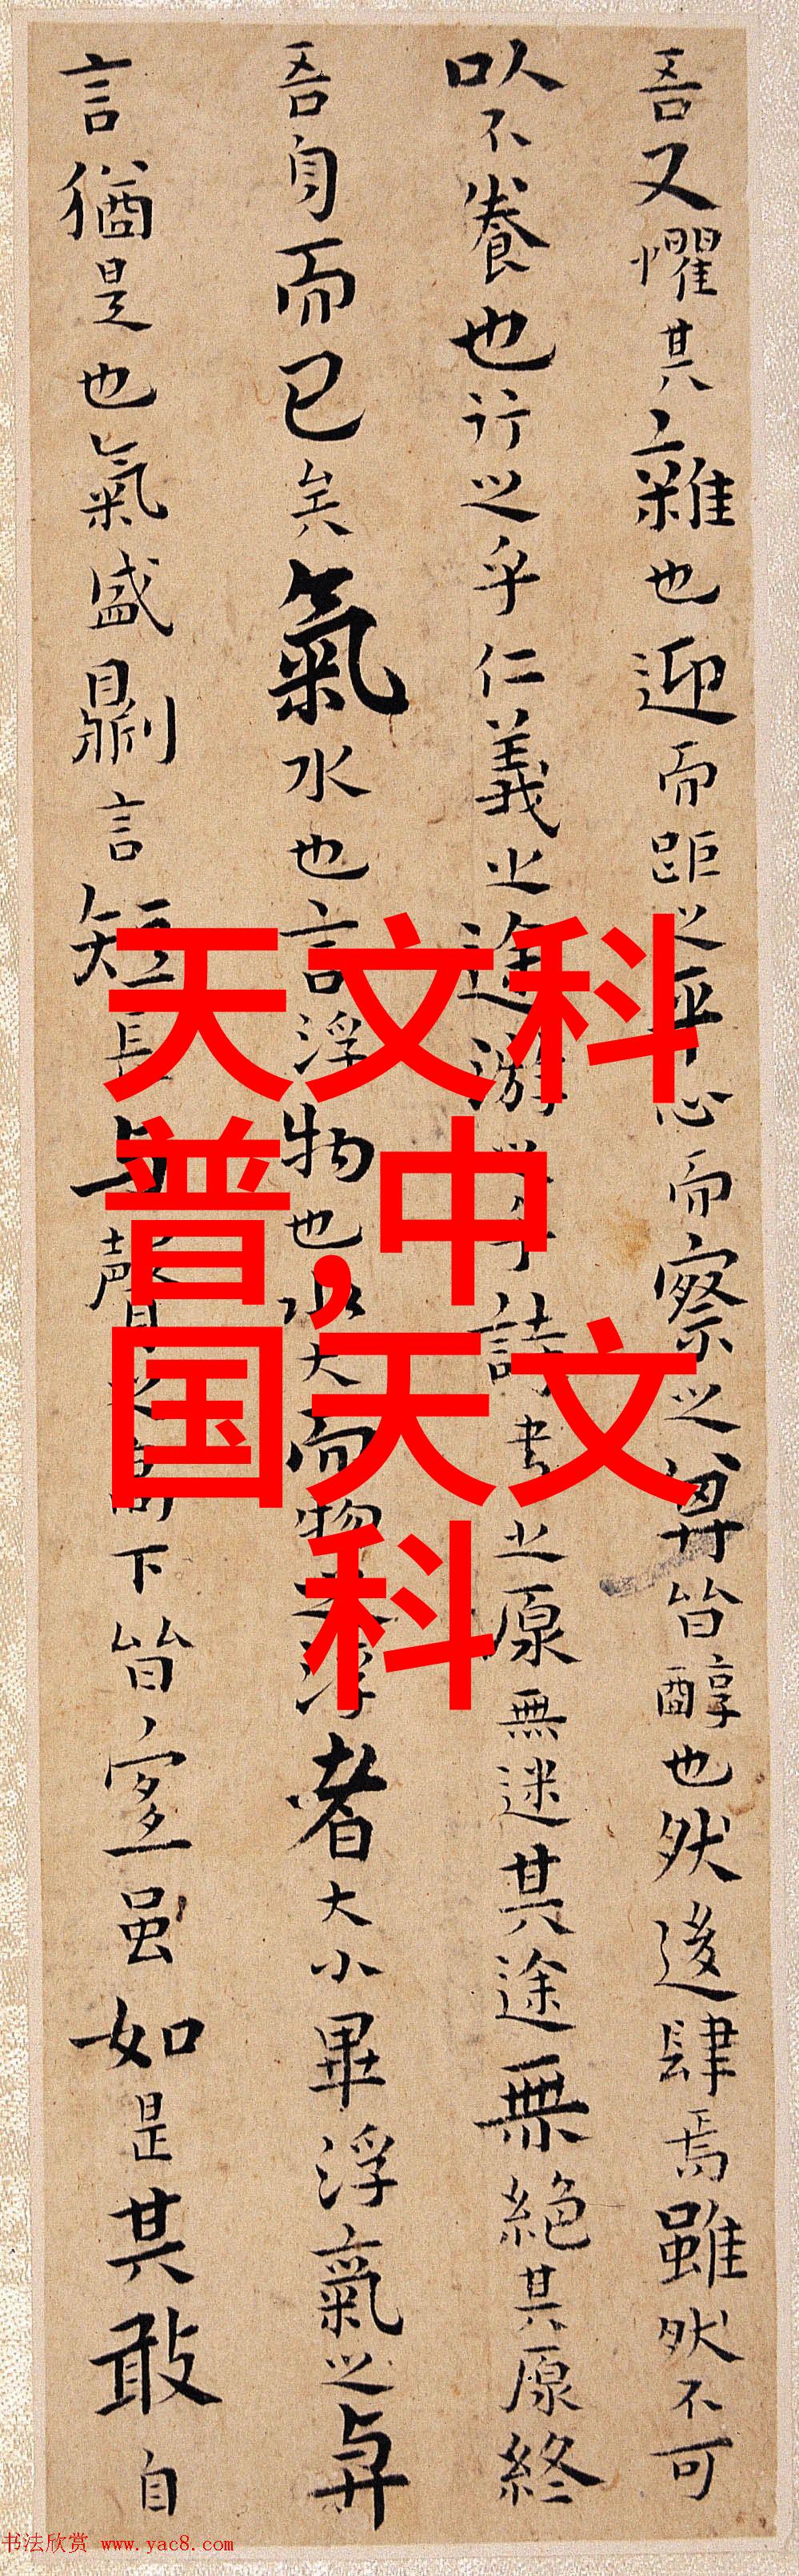 吾又懼其雜也迎而距之平心而察之其皆醇也然後肆焉雖然不可
以不養也行之乎仁義之途游之乎詩書之原無迷其途無絕其原終
吾身而已矣氣水也言浮物也水大而物之浮者大小畢浮氣之與
言猶是也氣盛則言短長與聲之高下皆宜虽如是其敢自
天文科
普,中
国天文
科
书法欣赏 www.yac8.com